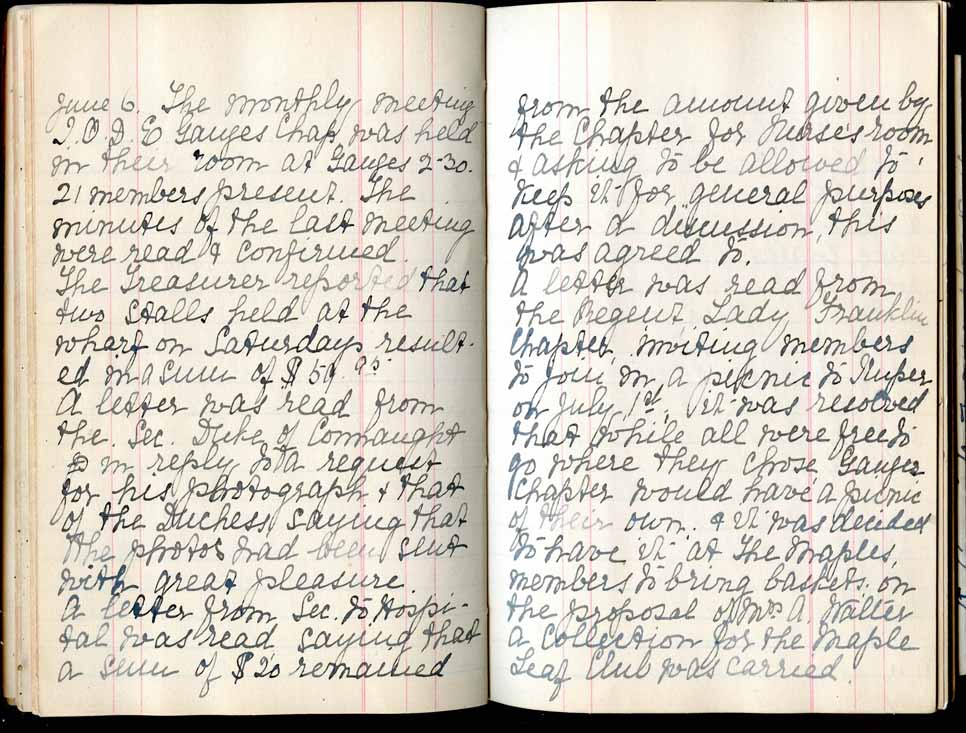 June 6. The monthly meeting
I.O.D.E Ganges Chap was held
in their room at Ganges 2-30.
21 members present. The
minutes of the last meeting
were read & confirmed.
The Treasurer reported that
two stalls held at the
wharf on Saturdays result-
ed in a sum of $ 59.95
A letter was read from
the Sec. Duke of Connaught
in reply to a request
for his photograph & that
of the Duchess saying that
the photos had been sent
with great pleasure.
A letter from Sec. to Hospi-
tal was read saying that
a sum of $20 remained
from the amount given by
the Chapter for Nurses room
& asking to be allowed to
keep it for general purposes
after a discussion, this
was agreed to.
A letter was read from
the Regent, Lady Franklin
Chapter inviting members
to join in a picnic to
on July 1st, it was resolved
that while all were free to
go where they chose Ganges
Chapter would have a picnic
of their own. & it was decided
to have it at The Maples,
members to bring baskets. on
the proposal of Mrs A. Walter
a collection for the Maple
Leaf Club was carried.